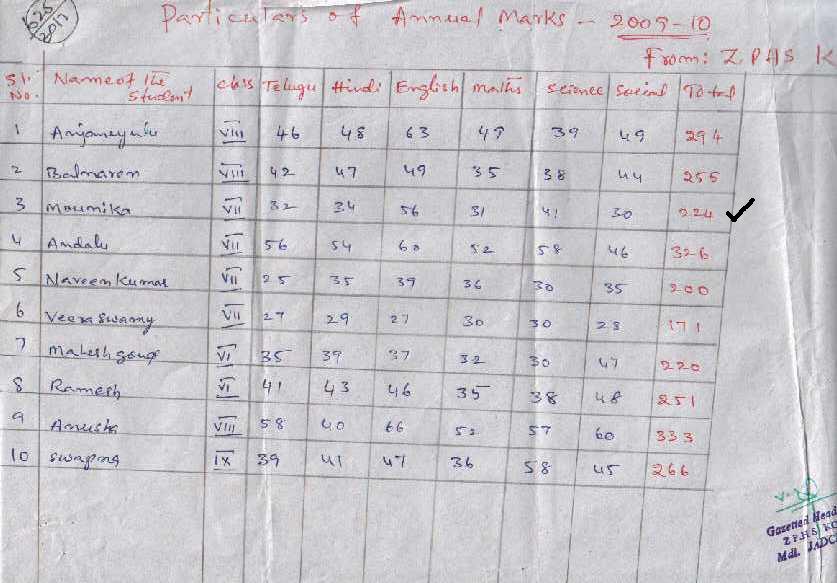 625
2017
Particulars of Annual Marks - 2009-10
From: ZPHS K
Sl. No. Name of the Student Class Telugu Hindi English maths science Social Total
1 Anjaneyulu VIII 46 48 63 49 39 49 294
2 Balnaren VIII 42 47 49 35 38 44 255
3 Mounika VII 32 34 56 31 41 30 224 ✓
4 Andalu VII 56 54 60 52 58 46 326
5 Naveen Kumar VII 25 35 39 36 30 35 200
6 Veera swamy VII 27 29 27 30 30 28 171
7 Mahesh goud VI 35 39 37 32 30 47 220
8 Ramesh VI 41 43 46 35 38 48 251
9 Anusha VIII 58 40 66 52 57 60 333
10 Swapna IX 39 41 47 36 58 45 266
Gazetted Head
Z.P.H.S KO
Mdl. JADC